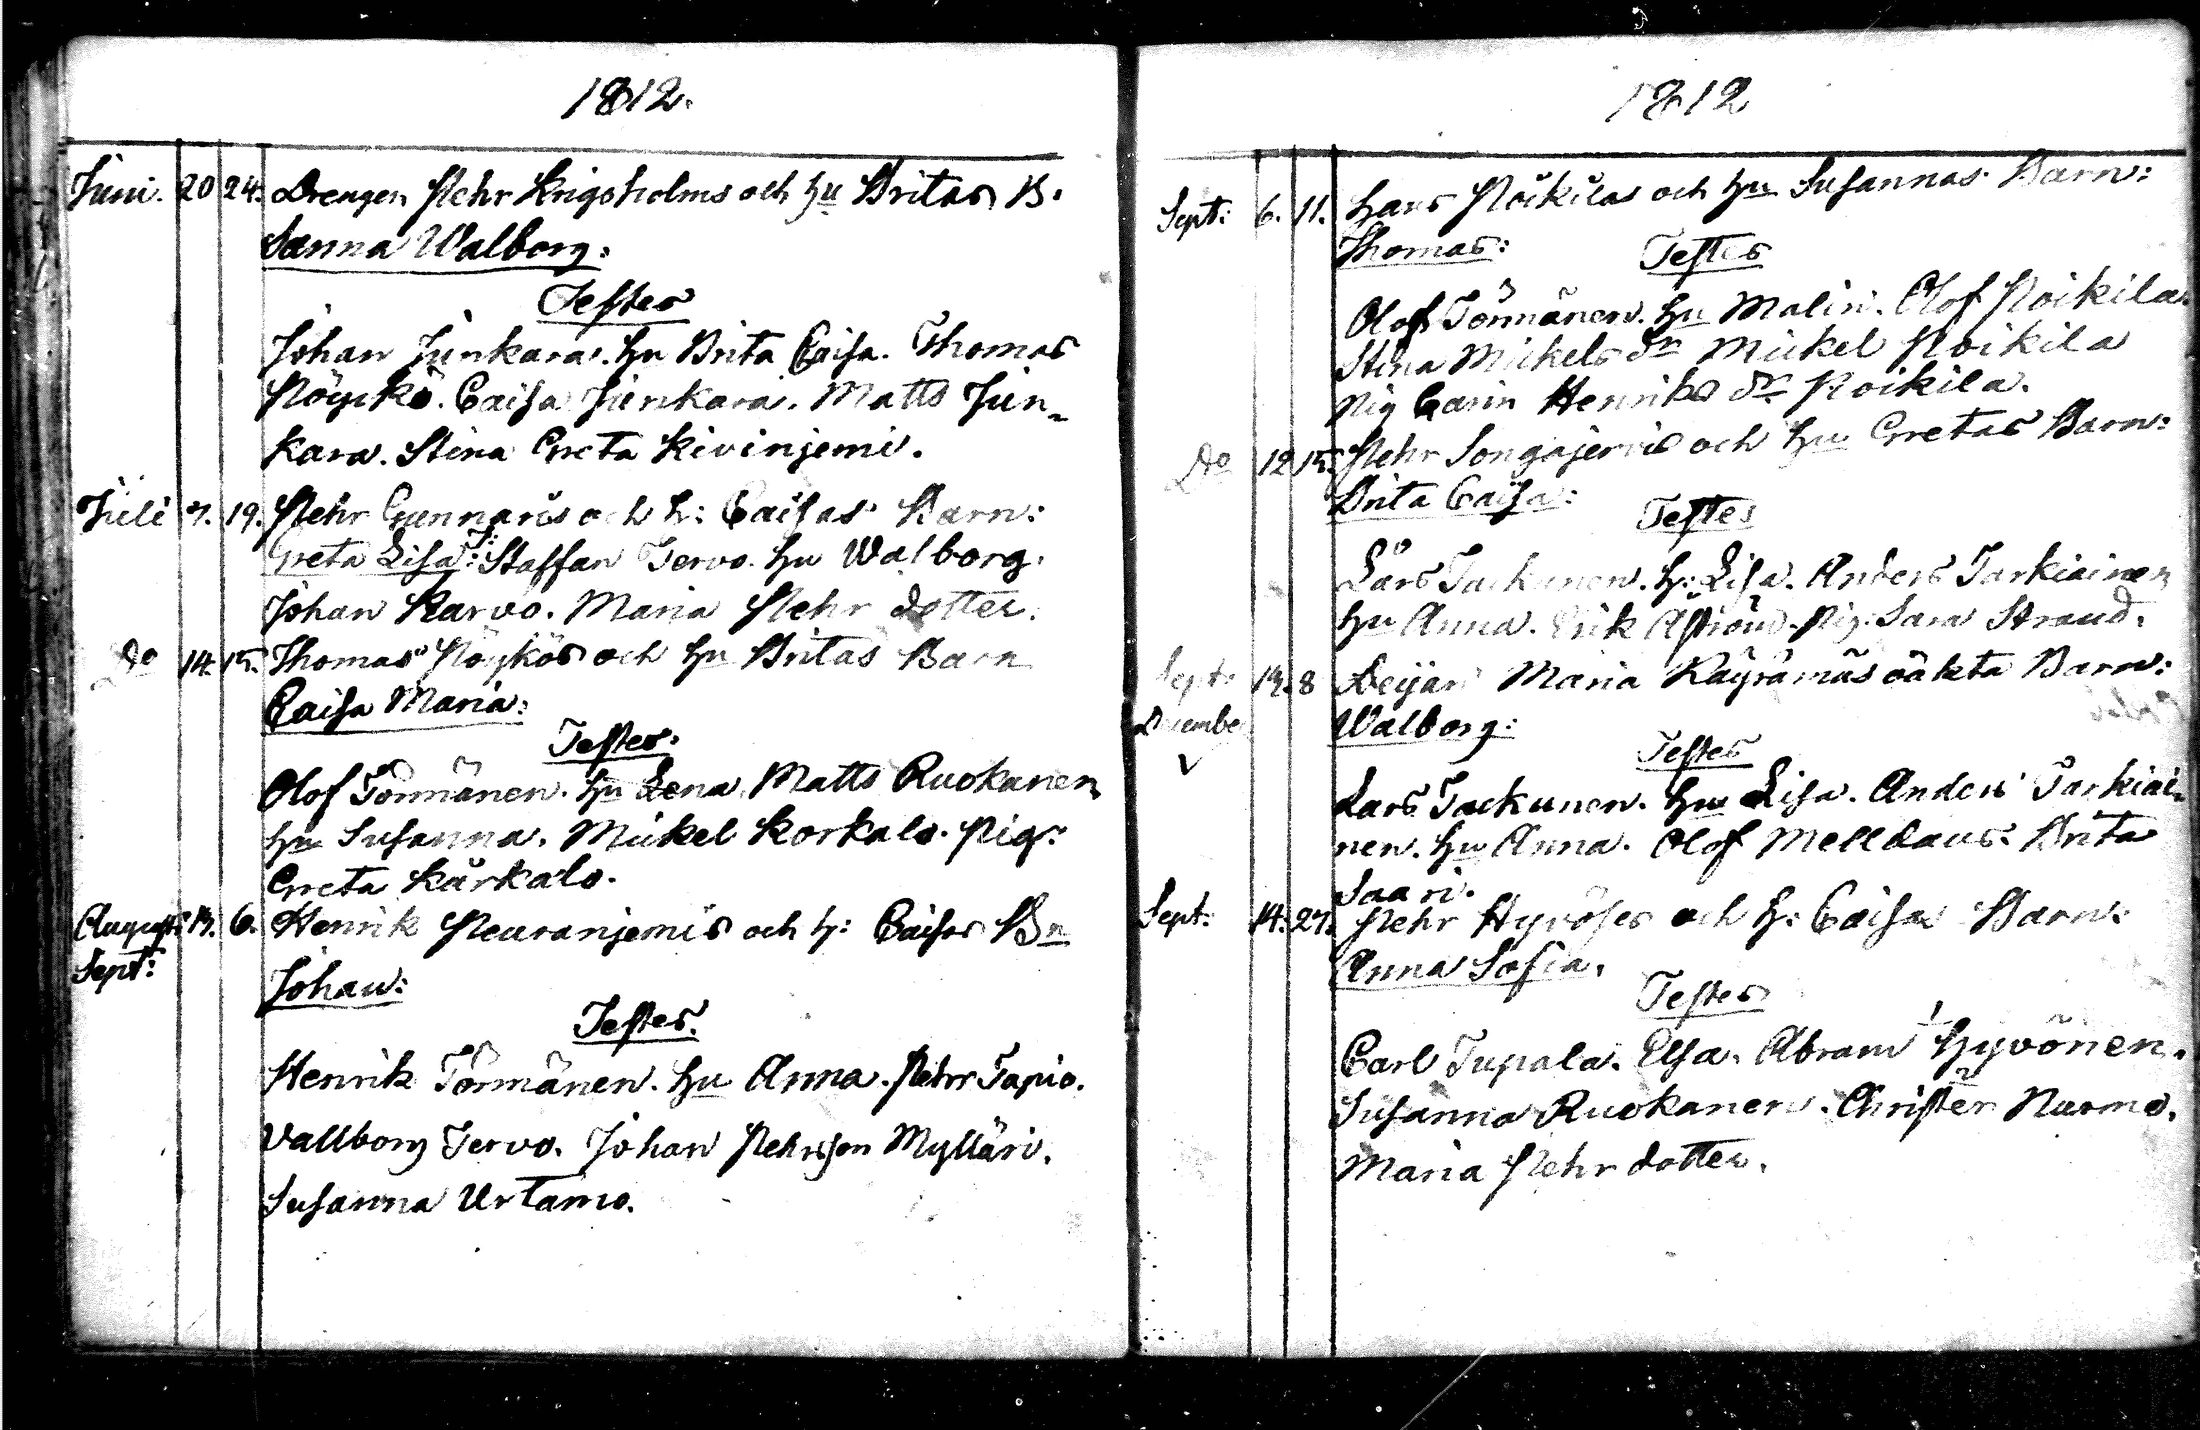 1812.
Juni. 20 24. Drengen Pehr Krigsholms och hu Britas B.
Sanna Walborg:
Testes
Johan Junkara. hu Brita Caisa. Thomas
Pöyckö. Caisa Junkara. Matts Jun-
kara. Stina Greta Kivinjemi.
Juli 7. 19. Pehr Gunnaris och h: Caisas Barn:
Greta Lisa: T: Staffan Tervo. hu Walborg.
Johan Karvo. Maria Pehr dotter.
Do 14. 15. Thomas Pöykös och hu Britas Barn
Caisa Maria:
Testes:
Olof Törmänen. hu Lena. Matts Ruokanen
hu Susanna. Mickel Korkalo. Pig:
Greta Kårkalo.
August: 13. 6. Henrik Peuranjemis och h: Caisas Bn
Sept:
Johan:
Testes.
Henrik Törmänen. hu Anna. Pehr Tapio.
Vallborg Tervo. Johan Pehrsson Mylläri.
Susanna Urtamo.
1812
Sept: 6. 11. Hans Poikilas och hu Susannas Barn:
Thomas: Testes
Olof Törmänen. hu Malin. Olof Poikila.
Stina Mickels dr Mickel Poikila
Pig Carin Henriks dr Poikila.
Do 12 15. Pehr Songajervis och hu Gretas Barn:
Brita Caisa: Testes
Lars Tackunen. h: Lisa. Anders Tarkiainen
hu Anna. Erik Aströnd. Pig: Sara Strand.
Sept: 13. 8 Deijan Maria Käyrämäs oäkta Barn:
December
Walborg:
Testes
Lars Tackunen. hu Lisa. Anders Tarkiai-
nen. hu Anna. Olof Melldaus. Brita
Saari.
Sept: 14. 27. Pehr Hyvöses och h: Caisas Barn:
Anna Sofia.
Testes
Carl Tupala. Elsa. Abram Hyvönen.
Susanna Ruokanen. Christer Nurmo.
Maria Pehr dotter.